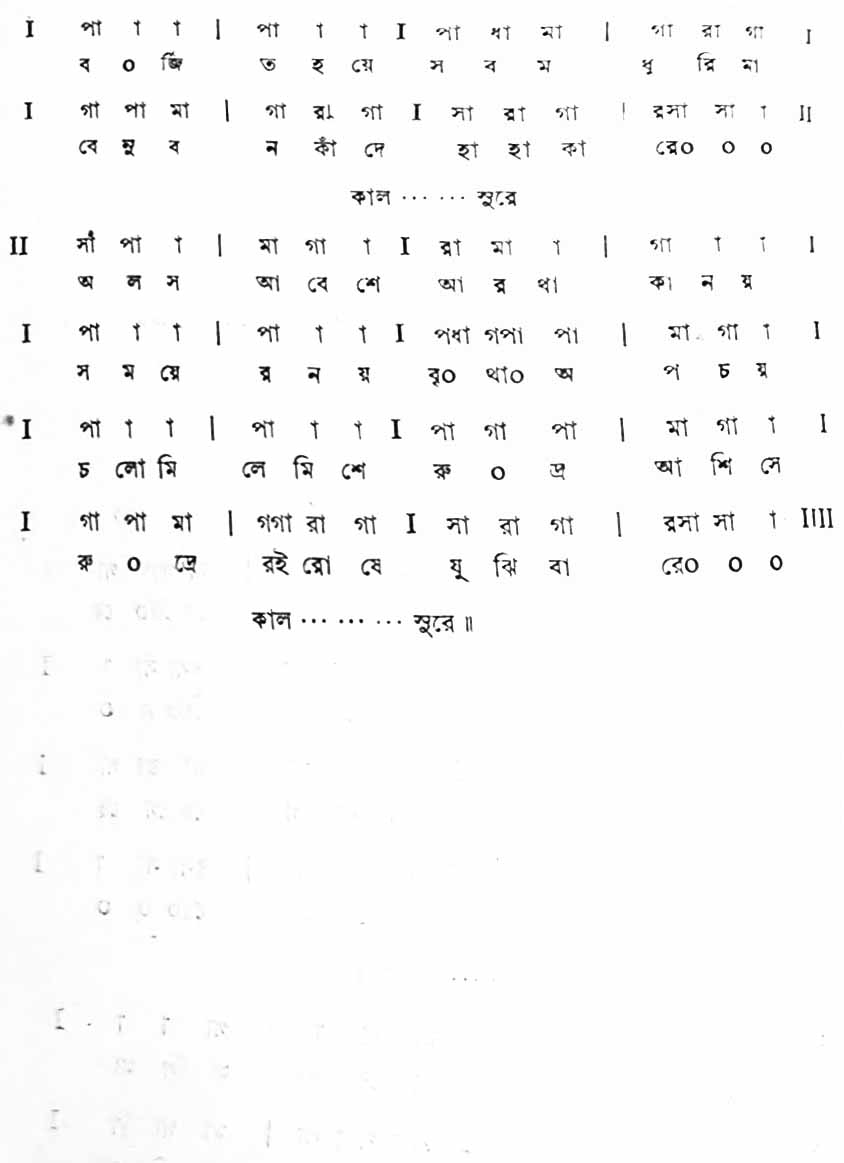 I পা া া | পা া া I পা ধা মা | গা রা গা I
ব ০ র্জি ত হ য়ে স ব ম ধু রি মা
I গা পা মা | গা রা গা I সা রা গা | রসা সা া II
বে নু ব ন কাঁ দে হা হা কা রে০ ০ ০
কাল ... ... সুরে
II র্সা পা া | মা গা া I রা মা া | গা া া I
অ ল স আ বে শে আ র থা কা ন য়
I পা া া | পা া া I পধা গপা পা | মা গা া I
স ম য়ে র ন য় বৃ০ থা০ অ প চ য়
I পা া া | পা া া I পা গা পা | মা গা া I
চ লো মি লে মি শে রু ০ দ্র আ শি সে
I গা পা মা | গগা রা গা I সা রা গা | রসা সা া IIII
রু ০ দ্রে রই রো ষে যু ঝি বা রে০ ০ ০
কাল ... ... ... সুরে॥